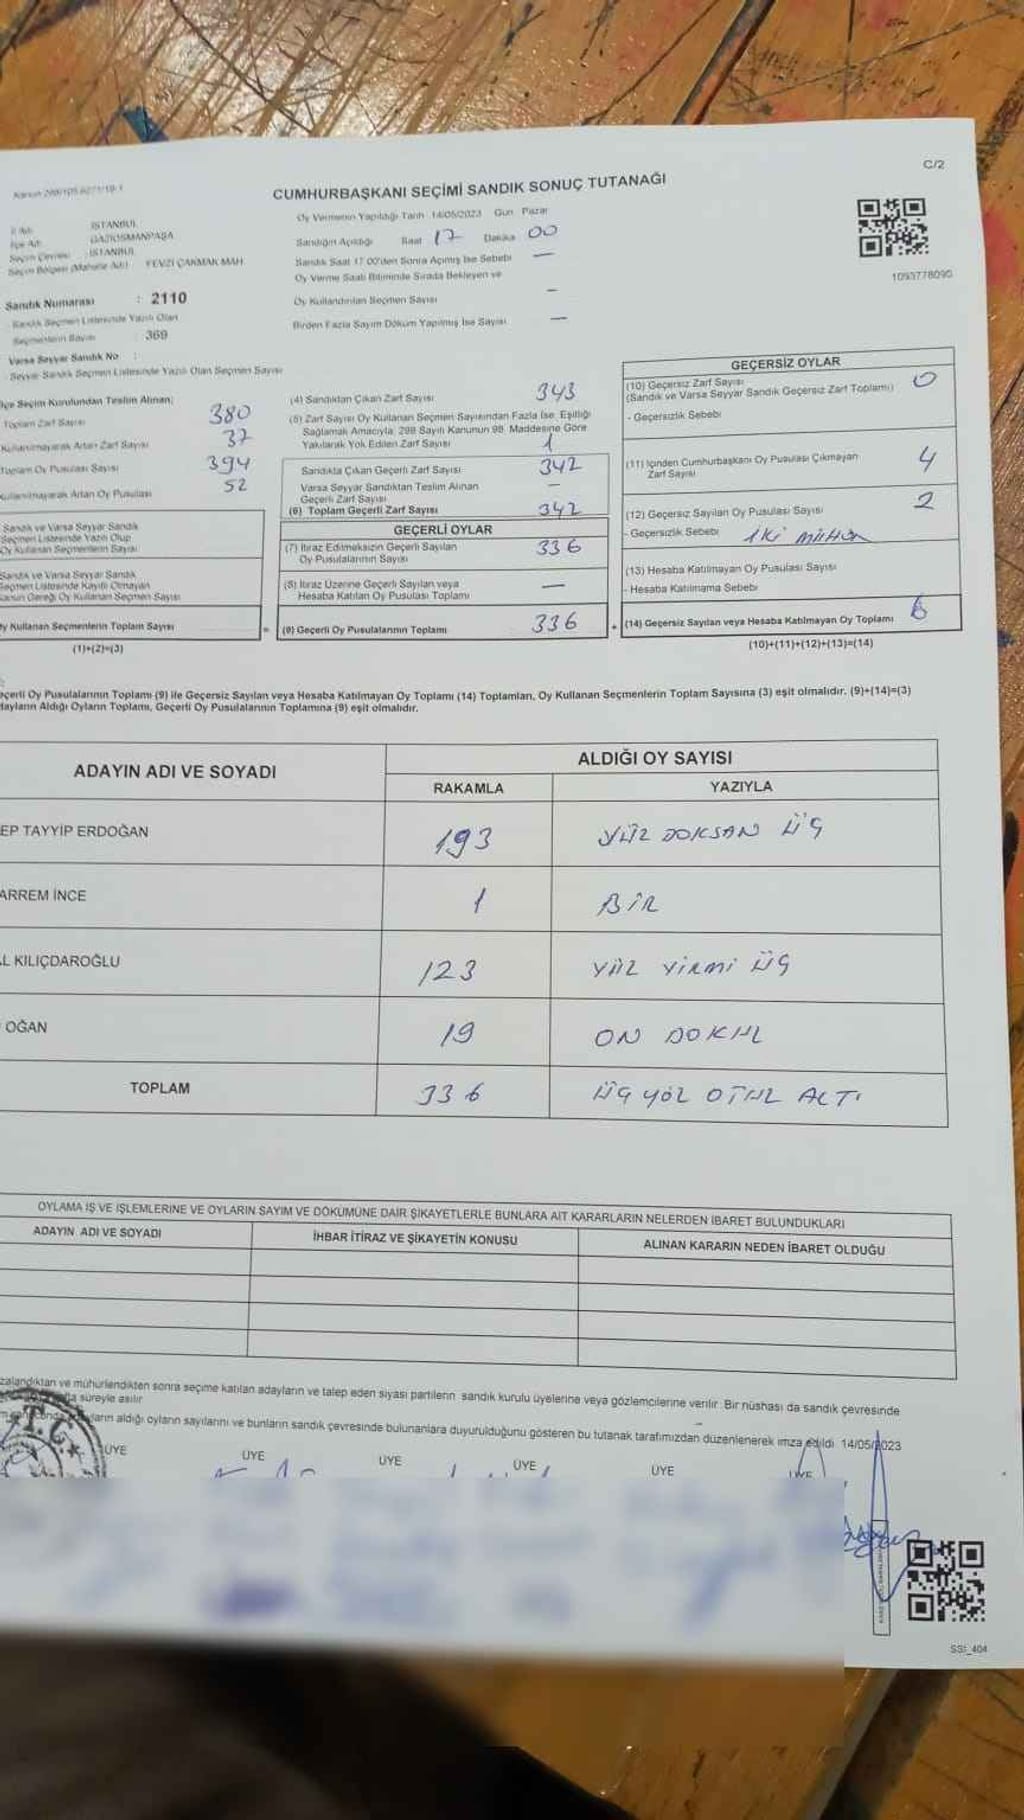 C/2
CUMHURBAŞKANI SEÇİMİ SANDIK SONUÇ TUTANAĞI
İSTANBUL
GAZİOSMANPAŞA
İSTANBUL
Seçim Bölgesi (Mahalle Adı) FEVZİ ÇAKMAK MAH.
Sandık Numarası : 2110
Sandık Seçmen Listesinde Yazılı Olan
Seçmenlerin Sayısı : 369
Varsa Seyyar Sandık No :
Seyyar Sandık Seçmen Listesinde Yazılı Olan Seçmen Sayısı
Oy Vermenin Yapıldığı Tarih 14/05/2023 Gün Pazar
Sandığın Açıldığı Saat 17 Dakika 00
Sandık Saat 17.00'den Sonra Açılmış İse Sebebi —
Oy Verme Saati Bitiminde Sırada Bekleyen ve
Oy Kullandırılan Seçmen Sayısı —
Birden Fazla Sayım Döküm Yapılmış İse Sayısı —
1093778090
İlçe Seçim Kurulundan Teslim Alınan;
Toplam Zarf Sayısı 380
Kullanılmayarak Artan Zarf Sayısı 37
Toplam Oy Pusulası Sayısı 394
Kullanılmayarak Artan Oy Pusulası 52
Sandık ve Varsa Seyyar Sandık
Seçmen Listesinde Yazılı Olup
Oy Kullanan Seçmenlerin Sayısı
Sandık ve Varsa Seyyar Sandık
Seçmen Listesinde Kayıtlı Olmayan
Kanun Gereği Oy Kullanan Seçmen Sayısı
Oy Kullanan Seçmenlerin Toplam Sayısı
(1)+(2)=(3)
(4) Sandıktan Çıkan Zarf Sayısı 343
(5) Zarf Sayısı Oy Kullanan Seçmen Sayısından Fazla İse, Eşitliği
Sağlamak Amacıyla, 298 Sayılı Kanunun 98. Maddesine Göre
Yakılarak Yok Edilen Zarf Sayısı 1
Sandıkta Çıkan Geçerli Zarf Sayısı 342
Varsa Seyyar Sandıktan Teslim Alınan
Geçerli Zarf Sayısı —
(6) Toplam Geçerli Zarf Sayısı 342
GEÇERLİ OYLAR
(7) İtiraz Edilmeksizin Geçerli Sayılan
Oy Pusulalarının Sayısı 336
(8) İtiraz Üzerine Geçerli Sayılan veya
Hesaba Katılan Oy Pusulası Toplamı —
= (9) Geçerli Oy Pusulalarının Toplamı 336 +
GEÇERSİZ OYLAR
(10) Geçersiz Zarf Sayısı 0
(Sandık ve Varsa Seyyar Sandık Geçersiz Zarf Toplamı)
- Geçersizlik Sebebi
(11) İçinden Cumhurbaşkanı Oy Pusulası Çıkmayan
Zarf Sayısı 4
(12) Geçersiz Sayılan Oy Pusulası Sayısı 2
- Geçersizlik Sebebi iki mühür
(13) Hesaba Katılmayan Oy Pusulası Sayısı
- Hesaba Katılmama Sebebi
(14) Geçersiz Sayılan veya Hesaba Katılmayan Oy Toplamı 6
(10)+(11)+(12)+(13)=(14)
Oy Pusulalarının Toplamı (9) ile Geçersiz Sayılan veya Hesaba Katılmayan Oy Toplamı (14) Toplamları, Oy Kullanan Seçmenlerin Toplam Sayısına (3) eşit olmalıdır. (9)+(14)=(3)
Aldığı Oyların Toplamı, Geçerli Oy Pusulalarının Toplamına (9) eşit olmalıdır.
ADAYIN ADI VE SOYADI
ALDIĞI OY SAYISI
RAKAMLA YAZIYLA
EP TAYYİP ERDOĞAN 193 YÜZ DOKSAN ÜÇ
ARREM İNCE 1 BİR
L KILIÇDAROĞLU 123 YÜZ YİRMİ ÜÇ
OĞAN 19 ON DOKUZ
TOPLAM 336 ÜÇ YÜZ OTUZ ALTI
OYLAMA İŞ VE İŞLEMLERİNE VE OYLARIN SAYIM VE DÖKÜMÜNE DAİR ŞİKAYETLERLE BUNLARA AİT KARARLARIN NELERDEN İBARET BULUNDUKLARI
ADAYIN ADI VE SOYADI İHBAR İTİRAZ VE ŞİKAYETİN KONUSU ALINAN KARARIN NEDEN İBARET OLDUĞU
zalandıktan ve mühürlendikten sonra seçime katılan adayların ve talep eden siyasi partilerin sandık kurulu üyelerine veya gözlemcilerine verilir. Bir nüshası da sandık çevresinde
süreyle asılır.
aldığı oyların sayılarını ve bunların sandık çevresinde bulunanlara duyurulduğunu gösteren bu tutanak tarafımızdan düzenlenerek imza edildi. 14/05/2023
T.C.
ÜYE ÜYE ÜYE ÜYE ÜYE ÜYE
SSİ_404